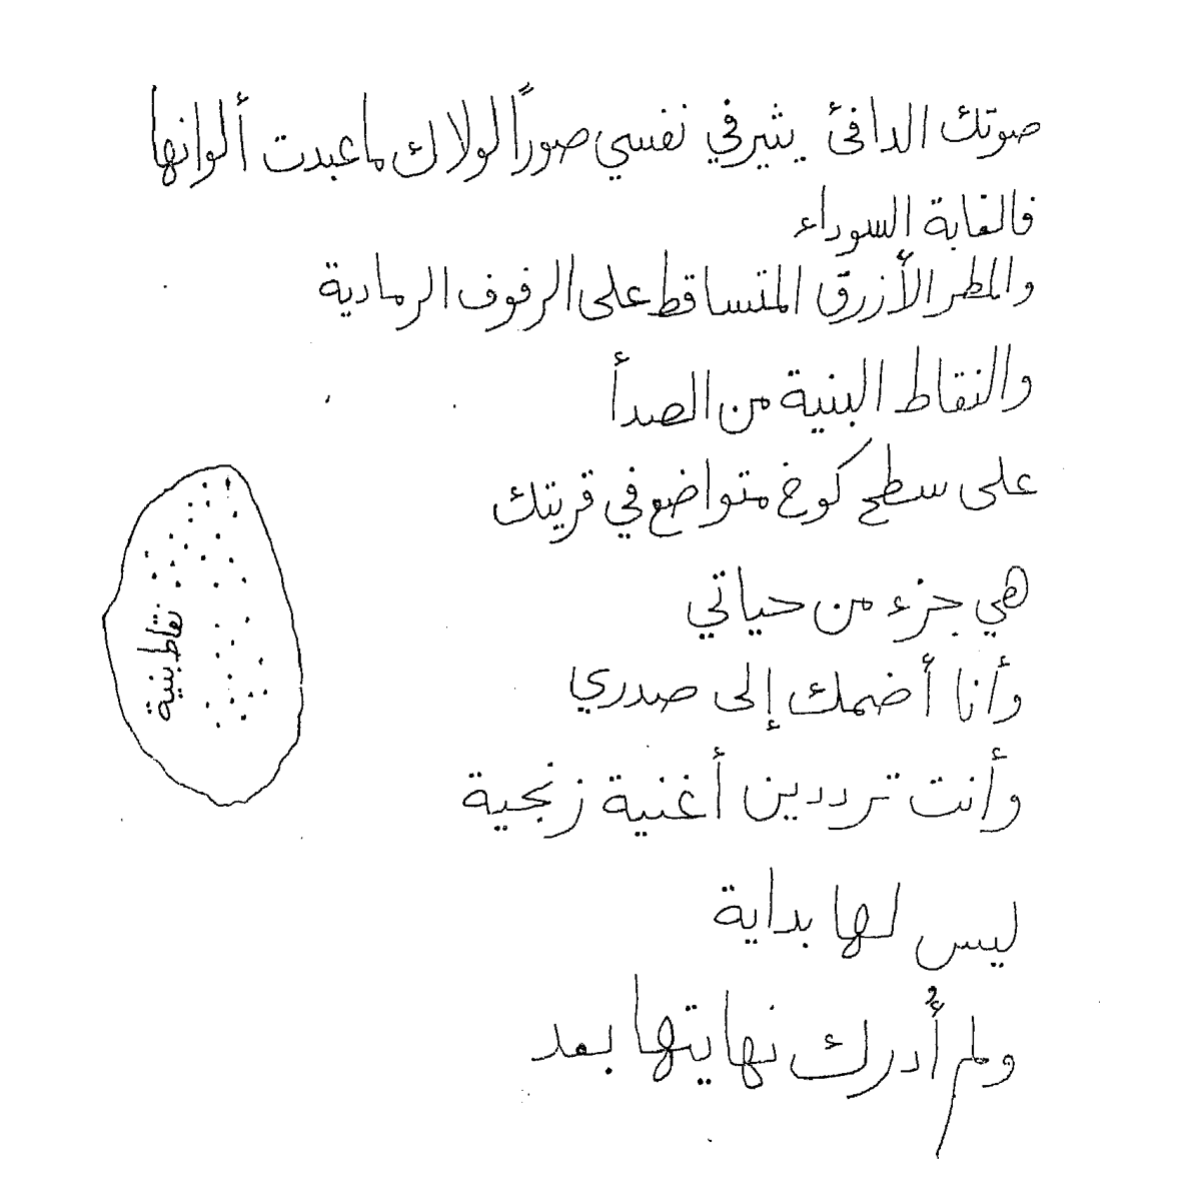 صوتك الدافئ يثير في نفسي صوراً لولاك ما عبدت ألوانها
فالغابة السوداء
والمطر الأزرق المتساقط على الرفوف الرمادية
والنقاط البنية من الصدأ
على سطح كوخ متواضع في قريتك
هي جزء من حياتي
وأنا أضمك إلى صدري
وأنت ترددين أغنية زنجية
ليس لها بداية
ولم أُدرك نهايتها بعد
نقاط بنية